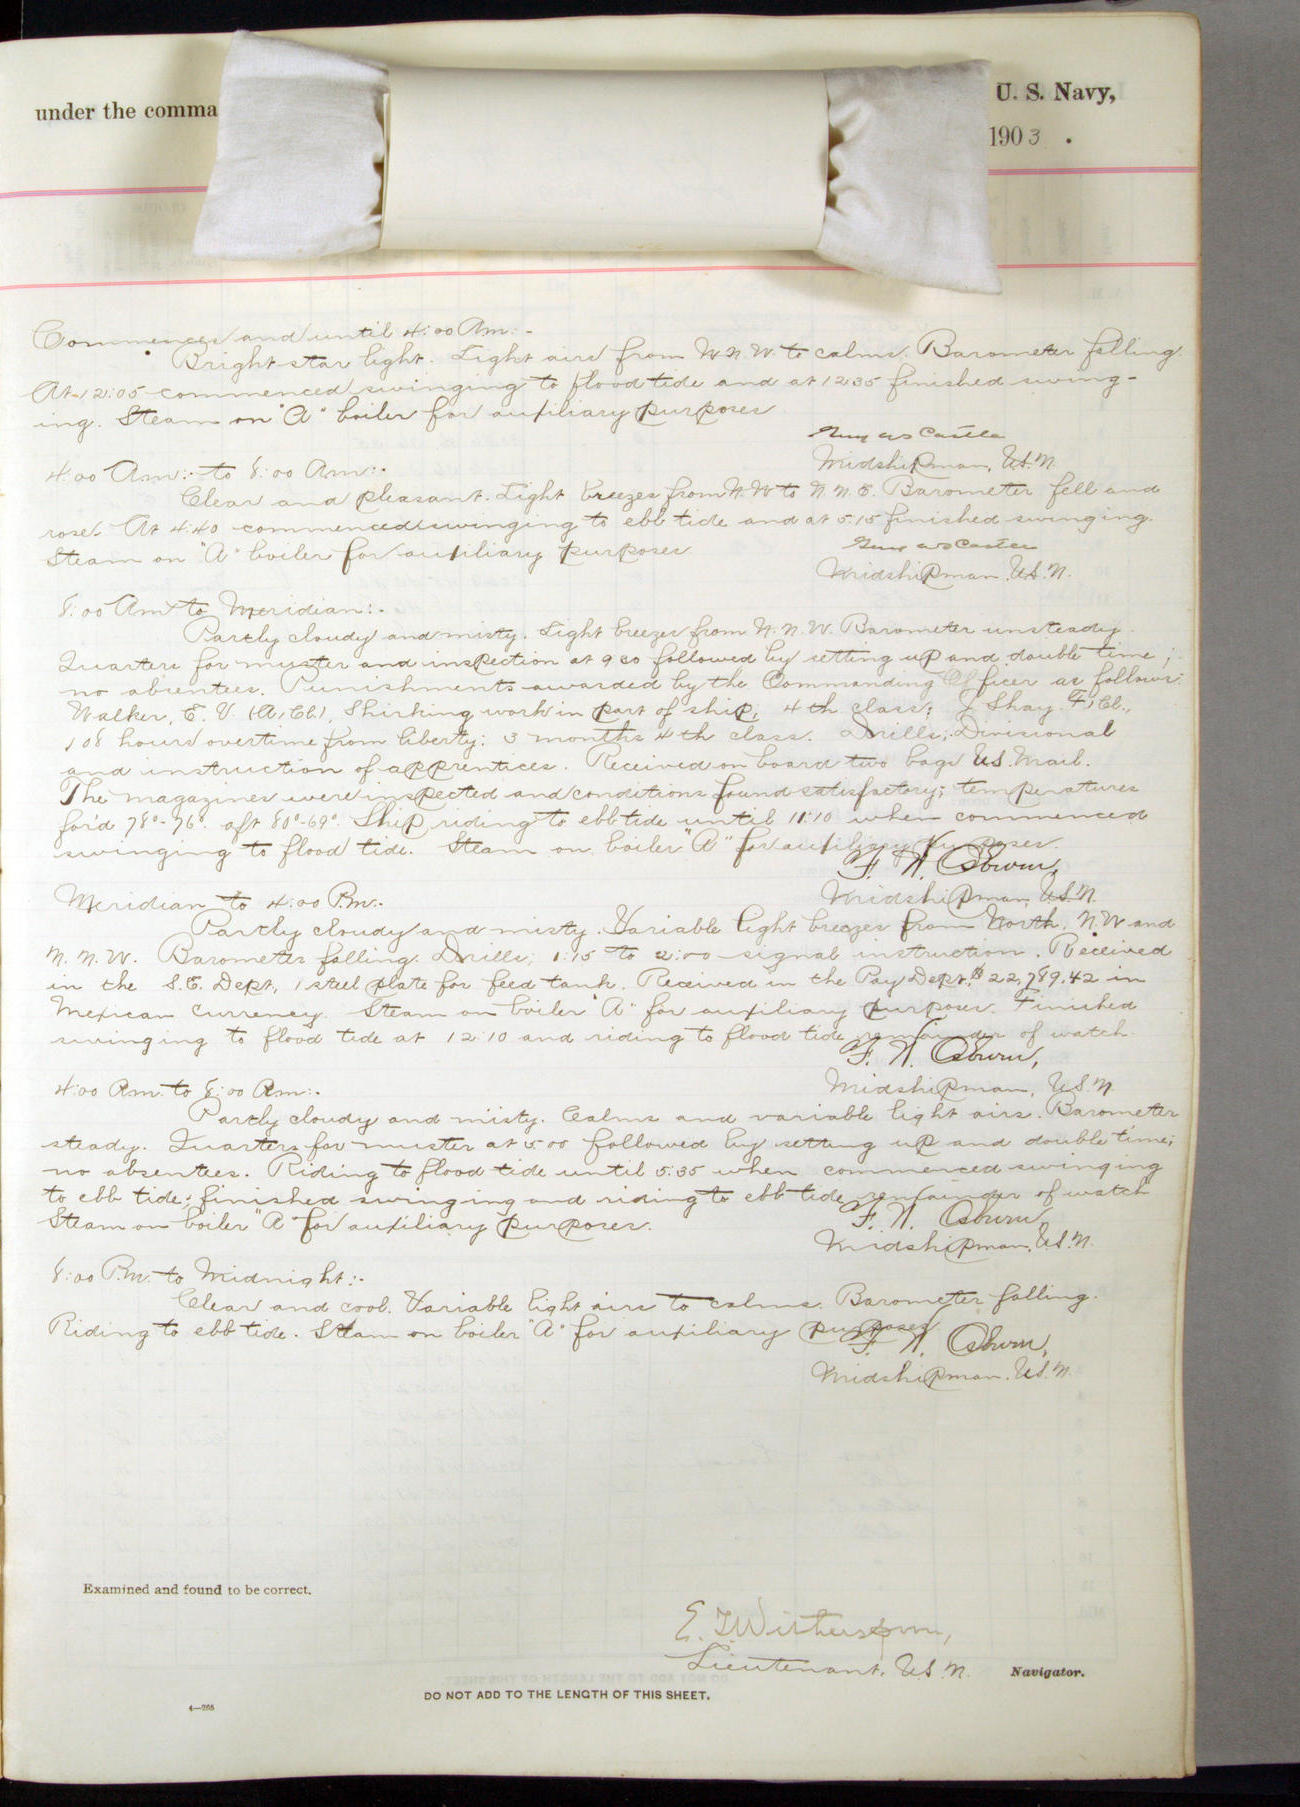 under the comma
U. S. Navy,
1903 .
Commences and until 4:00 Am:-
Bright star light. Light airs from W.N.W. to calms. Barometer falling
At 12:05 commenced swinging to flood tide and at 12:35 finished swing-
ing. Steam on "A" boiler for auxiliary purposes
Guy W S Castle
Midshipman, U.S.N.
4:00 Am:- to 8:00 Am:-
Clear and pleasant. Light breezes from N.W to N.N.E. Barometer fell and
rose. At 4:40 commenced swinging to ebb tide and at 5:15 finished swinging.
Steam on "A" boiler for auxiliary purposes
Guy W S Castle
Midshipman. U.S.N.
8:00 Am to Meridian:-
Partly cloudy and misty. Light breezes from N.N.W. Barometer unsteady.
Quarters for muster and inspection at 9 00 followed by setting up and double time;
no absentees. Punishments awarded by the Commanding Officer as follows:
Walker, E. V. (A, 1Cl.), Shirking work in part of ship; 4th class; J Shay. F, 1Cl.,
108 hours overtime from liberty: 3 months 4th class. Drills; Divisional
and instruction of apprentices. Received on board two bags U.S. Mail.
The magazines were inspected and conditions found satisfactory; temperatures
for'd 78°-76°. aft 80°-69°. Ship riding to ebb tide until 11:10 when commenced
swinging to flood tide. Steam on boiler "A" for auxiliary purposes.
F. N. Osburn,
Midshipman, U.S.N.
Meridian to 4:00 P.m:-
Partly cloudy and misty. Variable light breezes from North, N.W and
N.N.W. Barometer falling. Drills; 1:15 to 2:00 signal instruction. Received
in the S.E. Dept, 1 steel plate for feed tank. Received in the Pay Dept. $22,789.42 in
Mexican Currency. Steam on boiler "A" for auxiliary purposes. Finished
swinging to flood tide at 12:10 and riding to flood tide remainder of watch
F. N. Osburn,
Midshipman, U.S.N.
4:00 Pm. to 8:00 Pm:-
Partly cloudy and misty. Calms and variable light airs. Barometer
steady. Quarters for muster at 5:00 followed by setting up and double time;
no absentees. Riding to flood tide until 5:35 when commenced swinging
to ebb tide; finished swinging and riding to ebb tide remainder of watch
Steam on boiler "A" for auxiliary purposes.
F. N. Osburn,
Midshipman, U.S.N.
8:00 P.m. to Midnight:-
Clear and cool. Variable light airs to calms. Barometer falling.
Riding to ebb tide. Steam on boiler "A" for auxiliary purposes
F. N. Osburn,
Midshipman. U.S.N.
Examined and found to be correct.
E. T. Witherspoon,
Lieutenant, U.S.N. Navigator.
DO NOT ADD TO THE LENGTH OF THIS SHEET.
4—205